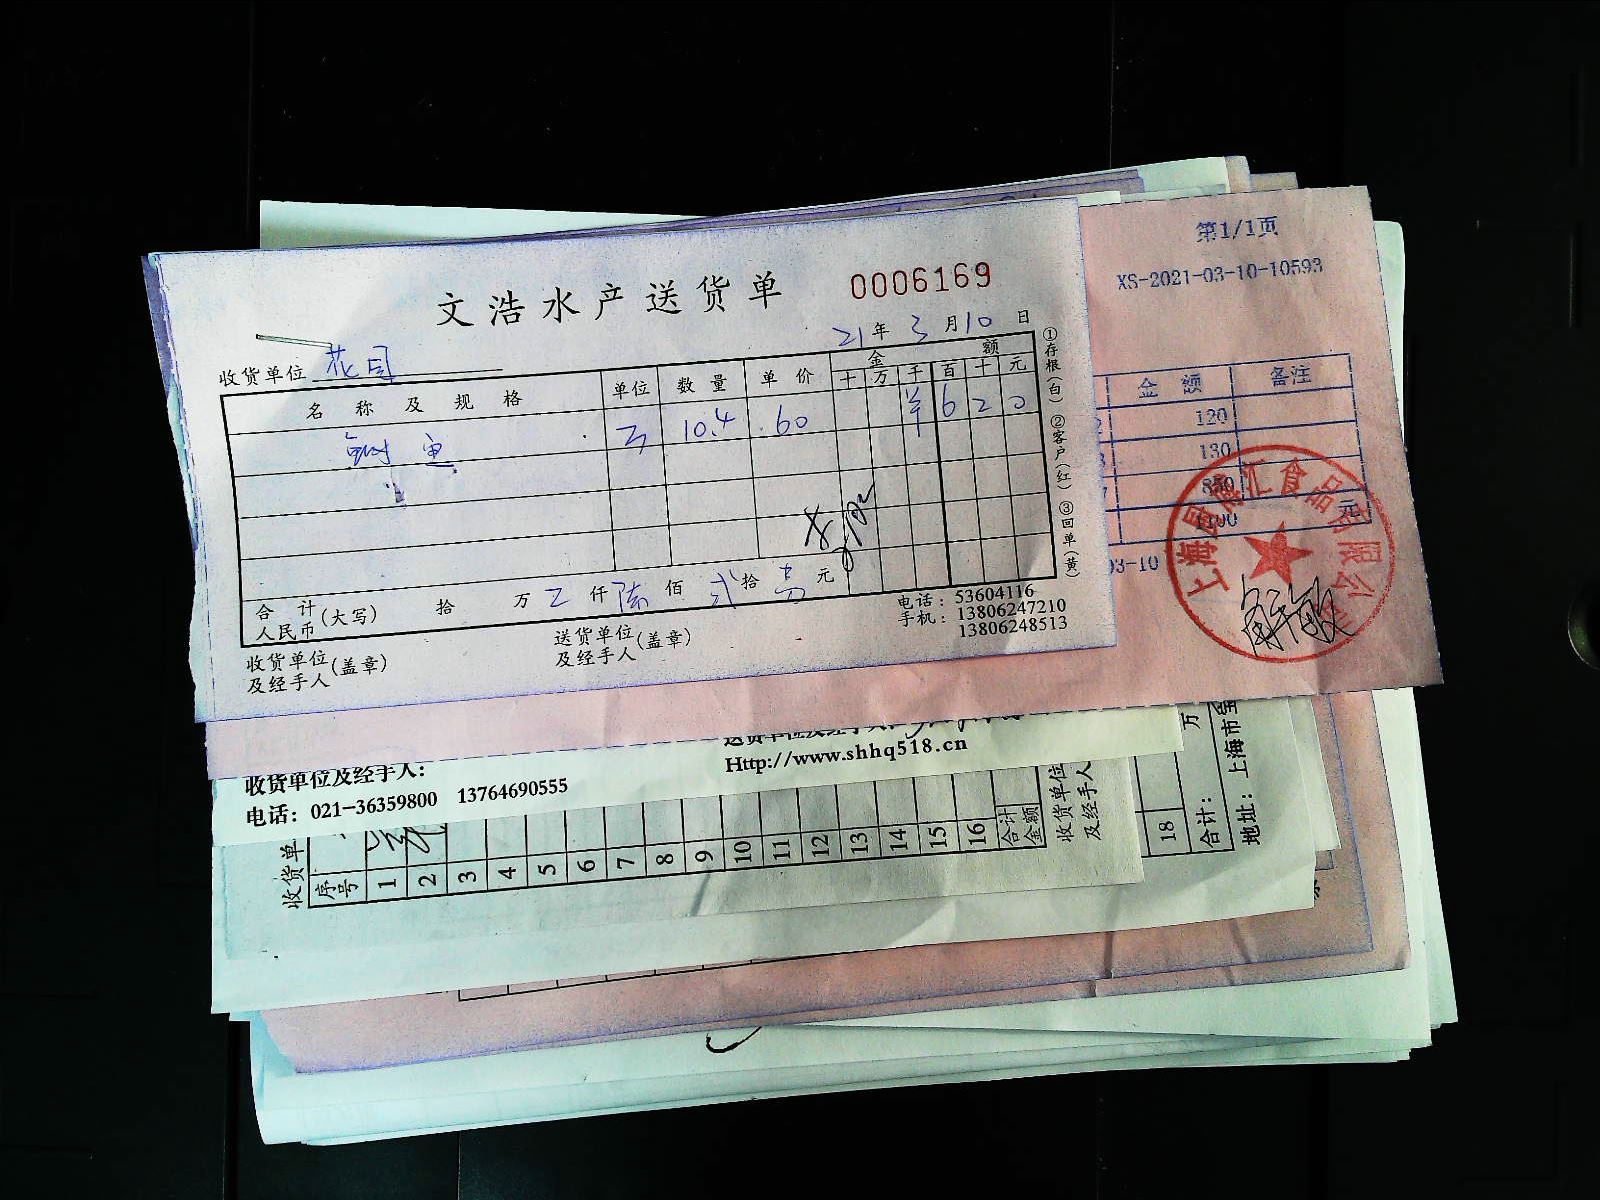 文浩水产送货单 0006169
21年3月10日
收货单位 花园
名称及规格 单位 数量 单价 金额
十 万 千 百 十 元
鱼 10.4 60 ¥ 6 2 0
合计人民币(大写) 拾 万 仟 陆 佰 贰 拾 元
收货单位及经手人(盖章) 送货单位及经手人(盖章)
电话：53604116
手机：13806247210
13806248513
①存根(白) ②客户(红) ③回单(黄)
第1/1页
XS-2021-03-10-10593
金额 备注
120
130
850
1100 元
03-10
收货单位及经手人：
送货单位及经手人：
Http://www.shhq518.cn
电话：021-36359800 13764690555
收货单
序号 1 2 3 4 5 6 7 8 9 10 11 12 13 14 15 16 合计金额
收货单位及经手人
18
万
合计：
地址：上海市宝